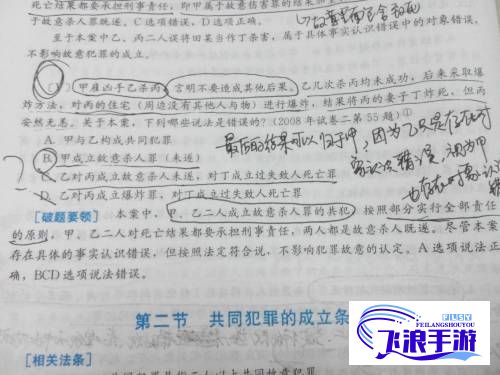 都是要承担刑事责任，即甲属于故意伤害罪的结
于故意杀人罪既遂。C选项错误，D选项正确。
至于本案中乙、丙二人误将田某当作丁杀害，属于具体事实认识错误中的对象错误，
不影响故意犯罪的成立。
甲雇凶手乙杀丙，言明不要造成其他后果。乙几次杀丙均未成功，后来采取爆
炸方法，对丙的住宅（周边没有其他人与物）进行爆炸，结果将丙的妻子丁炸死，但丙
安然无恙。关于本案，下列哪些说法是错误的？（2008年试卷二第55题）
A. 甲与乙构成共同犯罪
最后的结果可以归于甲，因为乙只是存在对
B. 甲成立故意杀人罪（未遂）
C. 乙对丙成立故意杀人罪未遂，对丁成立过失致人死亡罪
D. 乙对丙成立爆炸罪，对丁成立过失致人死亡罪
【破题要领】 本案中，甲、乙二人成立故意杀人罪的共犯，按照部分实行全部责任
的原则，甲、乙二人对死亡结果都要承担刑事责任，两人都是故意杀人既遂。尽管本案
存在具体的事实认识错误，但按照法定符合说，不影响犯罪故意的认定。A选项说法正
确，BCD选项说法错误。
第二节 共同犯罪的成立条
[相关法条]
飞浪手游
FLSY
FEILANGSHOUYOU